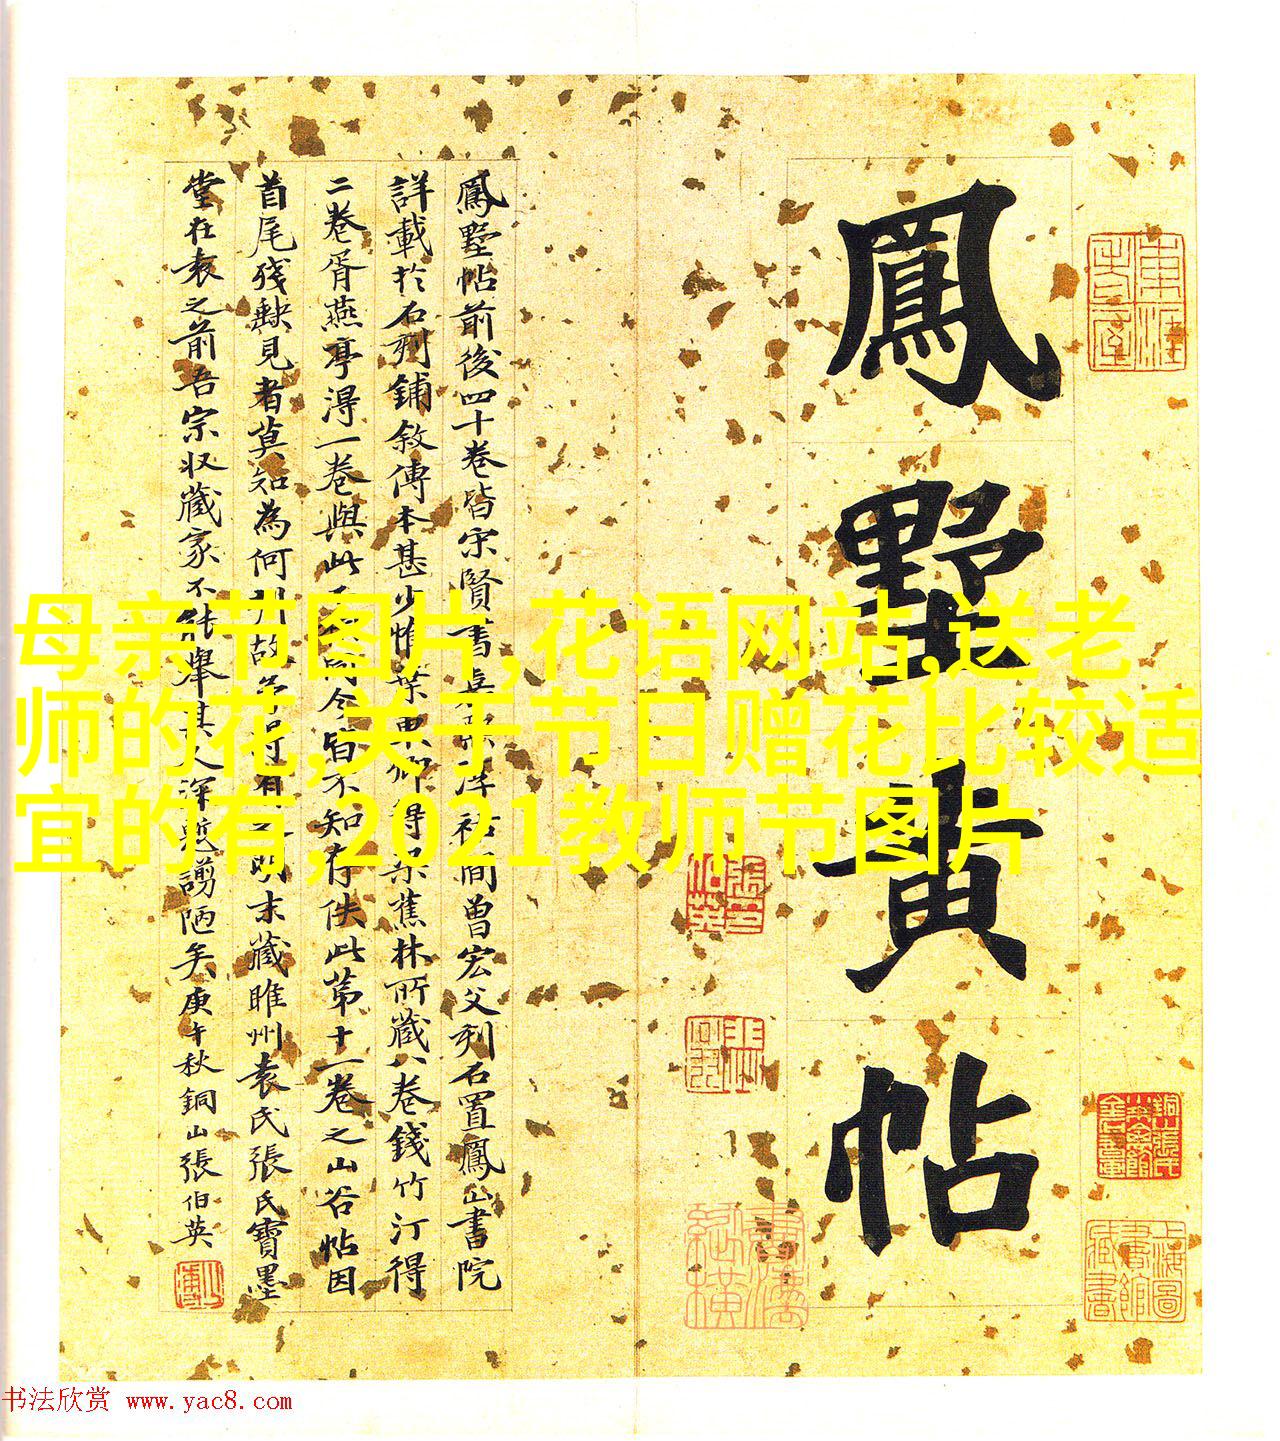 鳳墅帖
鳳墅帖前後四十卷皆宋賢書
曾宏父刋石置鳳山書院
詳載於石刻鋪敘傳本甚少惟葉
得梁蕉林所藏八卷錢竹汀得
二卷胥燕亭淂一卷與此
今皆不知存佚此第十一卷之山谷帖因
首尾殘缺見者莫知為何刋故
明末藏睢州袁氏張氏寶墨
堂在袁之前吾宗収藏家不能舉其人深
謭陋矣庚午秋銅山張伯英
母亲节图片,花语网站,送老
师的花,关于节日赠花比较适
宜的有,2021教师节图片
上海圖書館藏書
书法欣赏 www.yac8.com